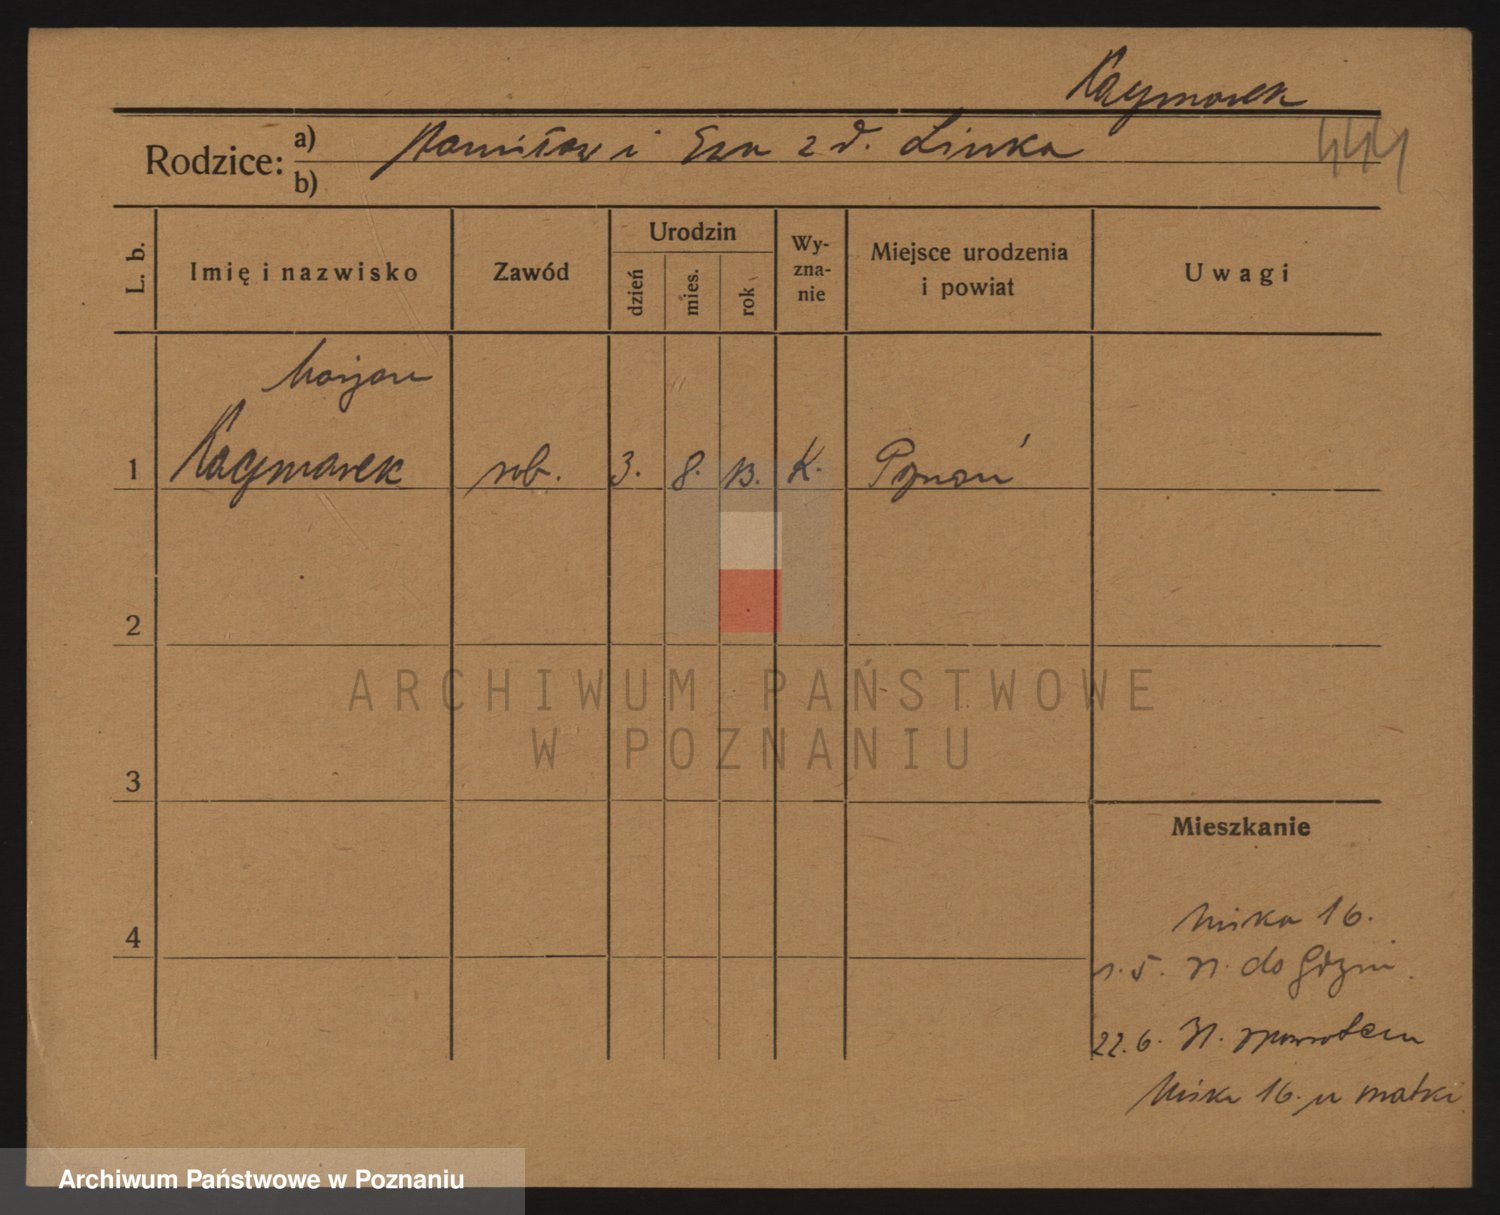 Kaczmarek
Rodzice: a) Stanisław i Ewa z d. Linka
444
b)
L. b.
Imię i nazwisko
Zawód
Urodzin
dzień
mies.
rok
Wy-
zna-
nie
Miejsce urodzenia
i powiat
Uwagi
Marjan
1 Kaczmarek rob. 3. 8. 13. K. Poznań
2
3
4
ARCHIWUM PAŃSTWOWE
W POZNANIU
Mieszkanie
16.
1. 5. 31. do Gdyni.
22. 6. 31. spowrotem
16. u matki
Archiwum Państwowe w Poznaniu